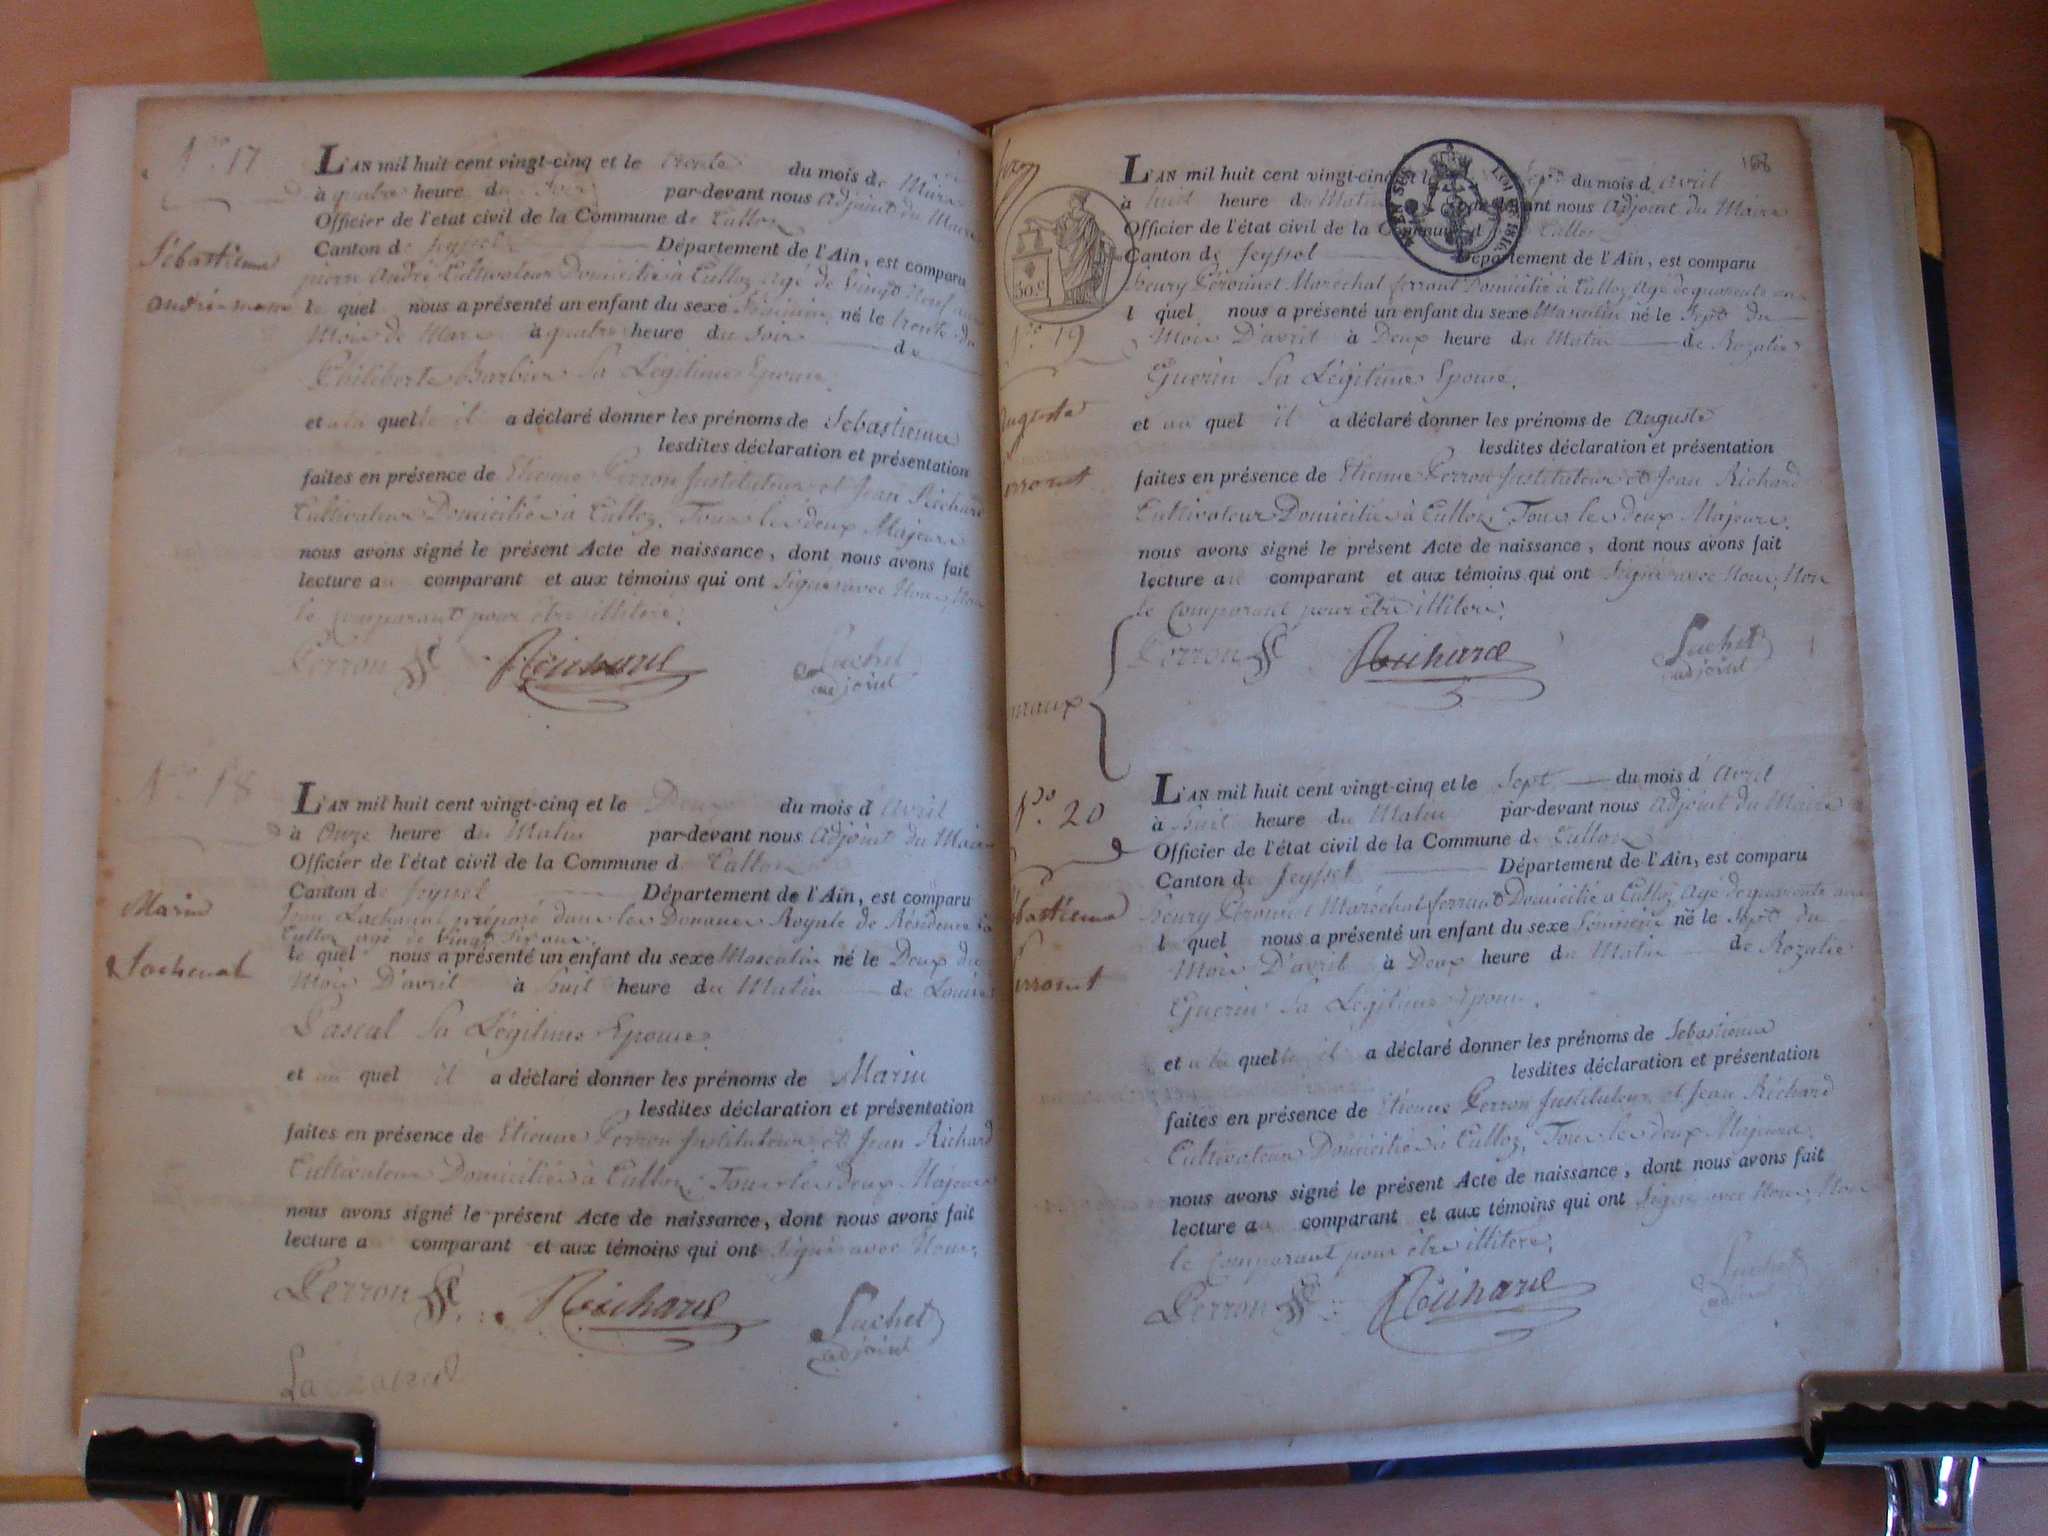 N.ro 17
L'AN mil huit cent vingt-cinq et le trente du mois de Mars
à quatre heure du Soir par-devant nous Adjoint du Maire
Officier de l'etat civil de la Commune de Culloz
Canton de Seyssel Département de l'Ain, est comparu
Sébastienne
pierre André Cultivateur Domicilié à Culloz agé de Vingt Neuf ans
le quel nous a présenté un enfant du sexe Féminin né le trente du
Mois de Mars à quatre heure du Soir de
Philiberte Barbier Sa Légitime Epouse.
et a la quelle il a déclaré donner les prénoms de Sebastienne
lesdites déclaration et présentation
faites en présence de Etienne Perron Instituteur et Jean Richard
Cultivateur Domiciliés à Culloz, Tous les deux Majeurs
nous avons signé le présent Acte de naissance, dont nous avons fait
lecture au comparant et aux témoins qui ont Signé avec Nous, Non
le comparant pour être illitere.
Perron Richard Luchet
adjoint
N.ro 18
L'AN mil huit cent vingt-cinq et le Deux du mois d'avril
à Onze heure du Matin par-devant nous Adjoint du Maire
Officier de l'état civil de la Commune de Culloz
Canton de Seyssel Département de l'Ain, est comparu
Marin
Lachenal
Jean Lachenal préposé dans les Douanes Royale de Résidence à
Culloz agé de Vingt Six ans.
le quel nous a présenté un enfant du sexe Masculin né le Deux du
Mois D'avril à huit heure du Matin de Louise
Pascal Sa Légitime Epouse.
et au quel il a déclaré donner les prénoms de Marin
lesdites déclaration et présentation
faites en présence de Etienne Perron Instituteur et Jean Richard
Cultivateur Domiciliés à Culloz, Tous les deux Majeurs
nous avons signé le présent Acte de naissance, dont nous avons fait
lecture a comparant et aux témoins qui ont Signé avec Nous,
Perron Richard Luchet
adjoint
Lachenal
168
L'AN mil huit cent vingt-cinq et le Sept du mois d'Avril
à huit heure du Matin par-devant nous Adjoint du Maire
Officier de l'état civil de la Commune de Culloz
Canton de Seyssel Département de l'Ain, est comparu
LOI 1816
50.c
henry Péronnet Maréchal ferrant Domicilié à Culloz Agé de quarente ans
l quel nous a présenté un enfant du sexe Masculin né le Sept du
N.ro 19
Mois D'avril à Deux heure du Matin de Rozalie
Guerin Sa Légitime Epouse.
Auguste
et au quel il a déclaré donner les prénoms de Auguste
lesdites déclaration et présentation
faites en présence de Etienne Perron Instituteur et Jean Richard
Cultivateur Domiciliés à Culloz, Tous les deux Majeurs.
nous avons signé le présent Acte de naissance, dont nous avons fait
lecture au comparant et aux témoins qui ont Signé avec Nous, Non
le Comparant pour être illitere.
Perron Richard Luchet
adjoint
N.ro 20
L'AN mil huit cent vingt-cinq et le Sept du mois d'Avril
à huit heure du Matin par-devant nous Adjoint du Maire
Officier de l'état civil de la Commune de Culloz
Canton de Seyssel Département de l'Ain, est comparu
henry Péronnet Maréchal ferrant Domicilié à Culloz Agé de quarente ans
l quel nous a présenté un enfant du sexe Féminin né le Sept du
Mois D'avril à Deux heure du Matin de Rozalie
Guerin Sa Légitime Epouse.
et a la quelle il a déclaré donner les prénoms de Sebastienne
lesdites déclaration et présentation
faites en présence de Etienne Perron Instituteur et Jean Richard
Cultivateur Domiciliés à Culloz, Tous les deux Majeurs.
nous avons signé le présent Acte de naissance, dont nous avons fait
lecture au comparant et aux témoins qui ont Signé avec Nous, Non
le Comparant pour être illitere.
Perron Richard Luchet